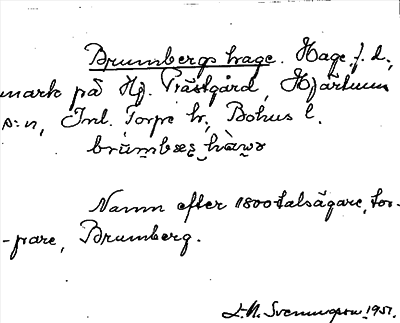 Brumbergs hage. Hage f. d.,
mark på Hg. Prästgård, Hjärtum
s:n, Inl. Torpe hr, Bohus l.
brùmbæʂ_hàɯə
Namn efter 1800talsägare, tor-
-pare, Brumberg.
J.N. Svenungsson 1951.